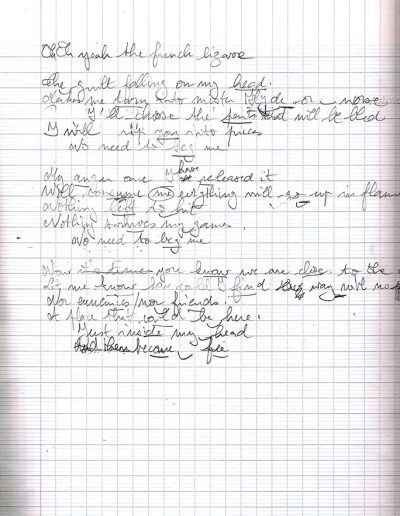 Oh Eh yeah the french bizare
the guilt falling on my head.
me torn into mister Hyde or a nerve
I'll choose the that will be bled
I will rip you into pieces
No need to beg me
My anger one I have released it
Will consume me everything will go up in flame
Nothing left to hit
Nothing survives my games.
No need to beg me
Now it's time you know we are close to the
Let me know how could I find this way with no
Nor ennemies/nor friends.
A place that could be here.
Just inside my head
And then become free